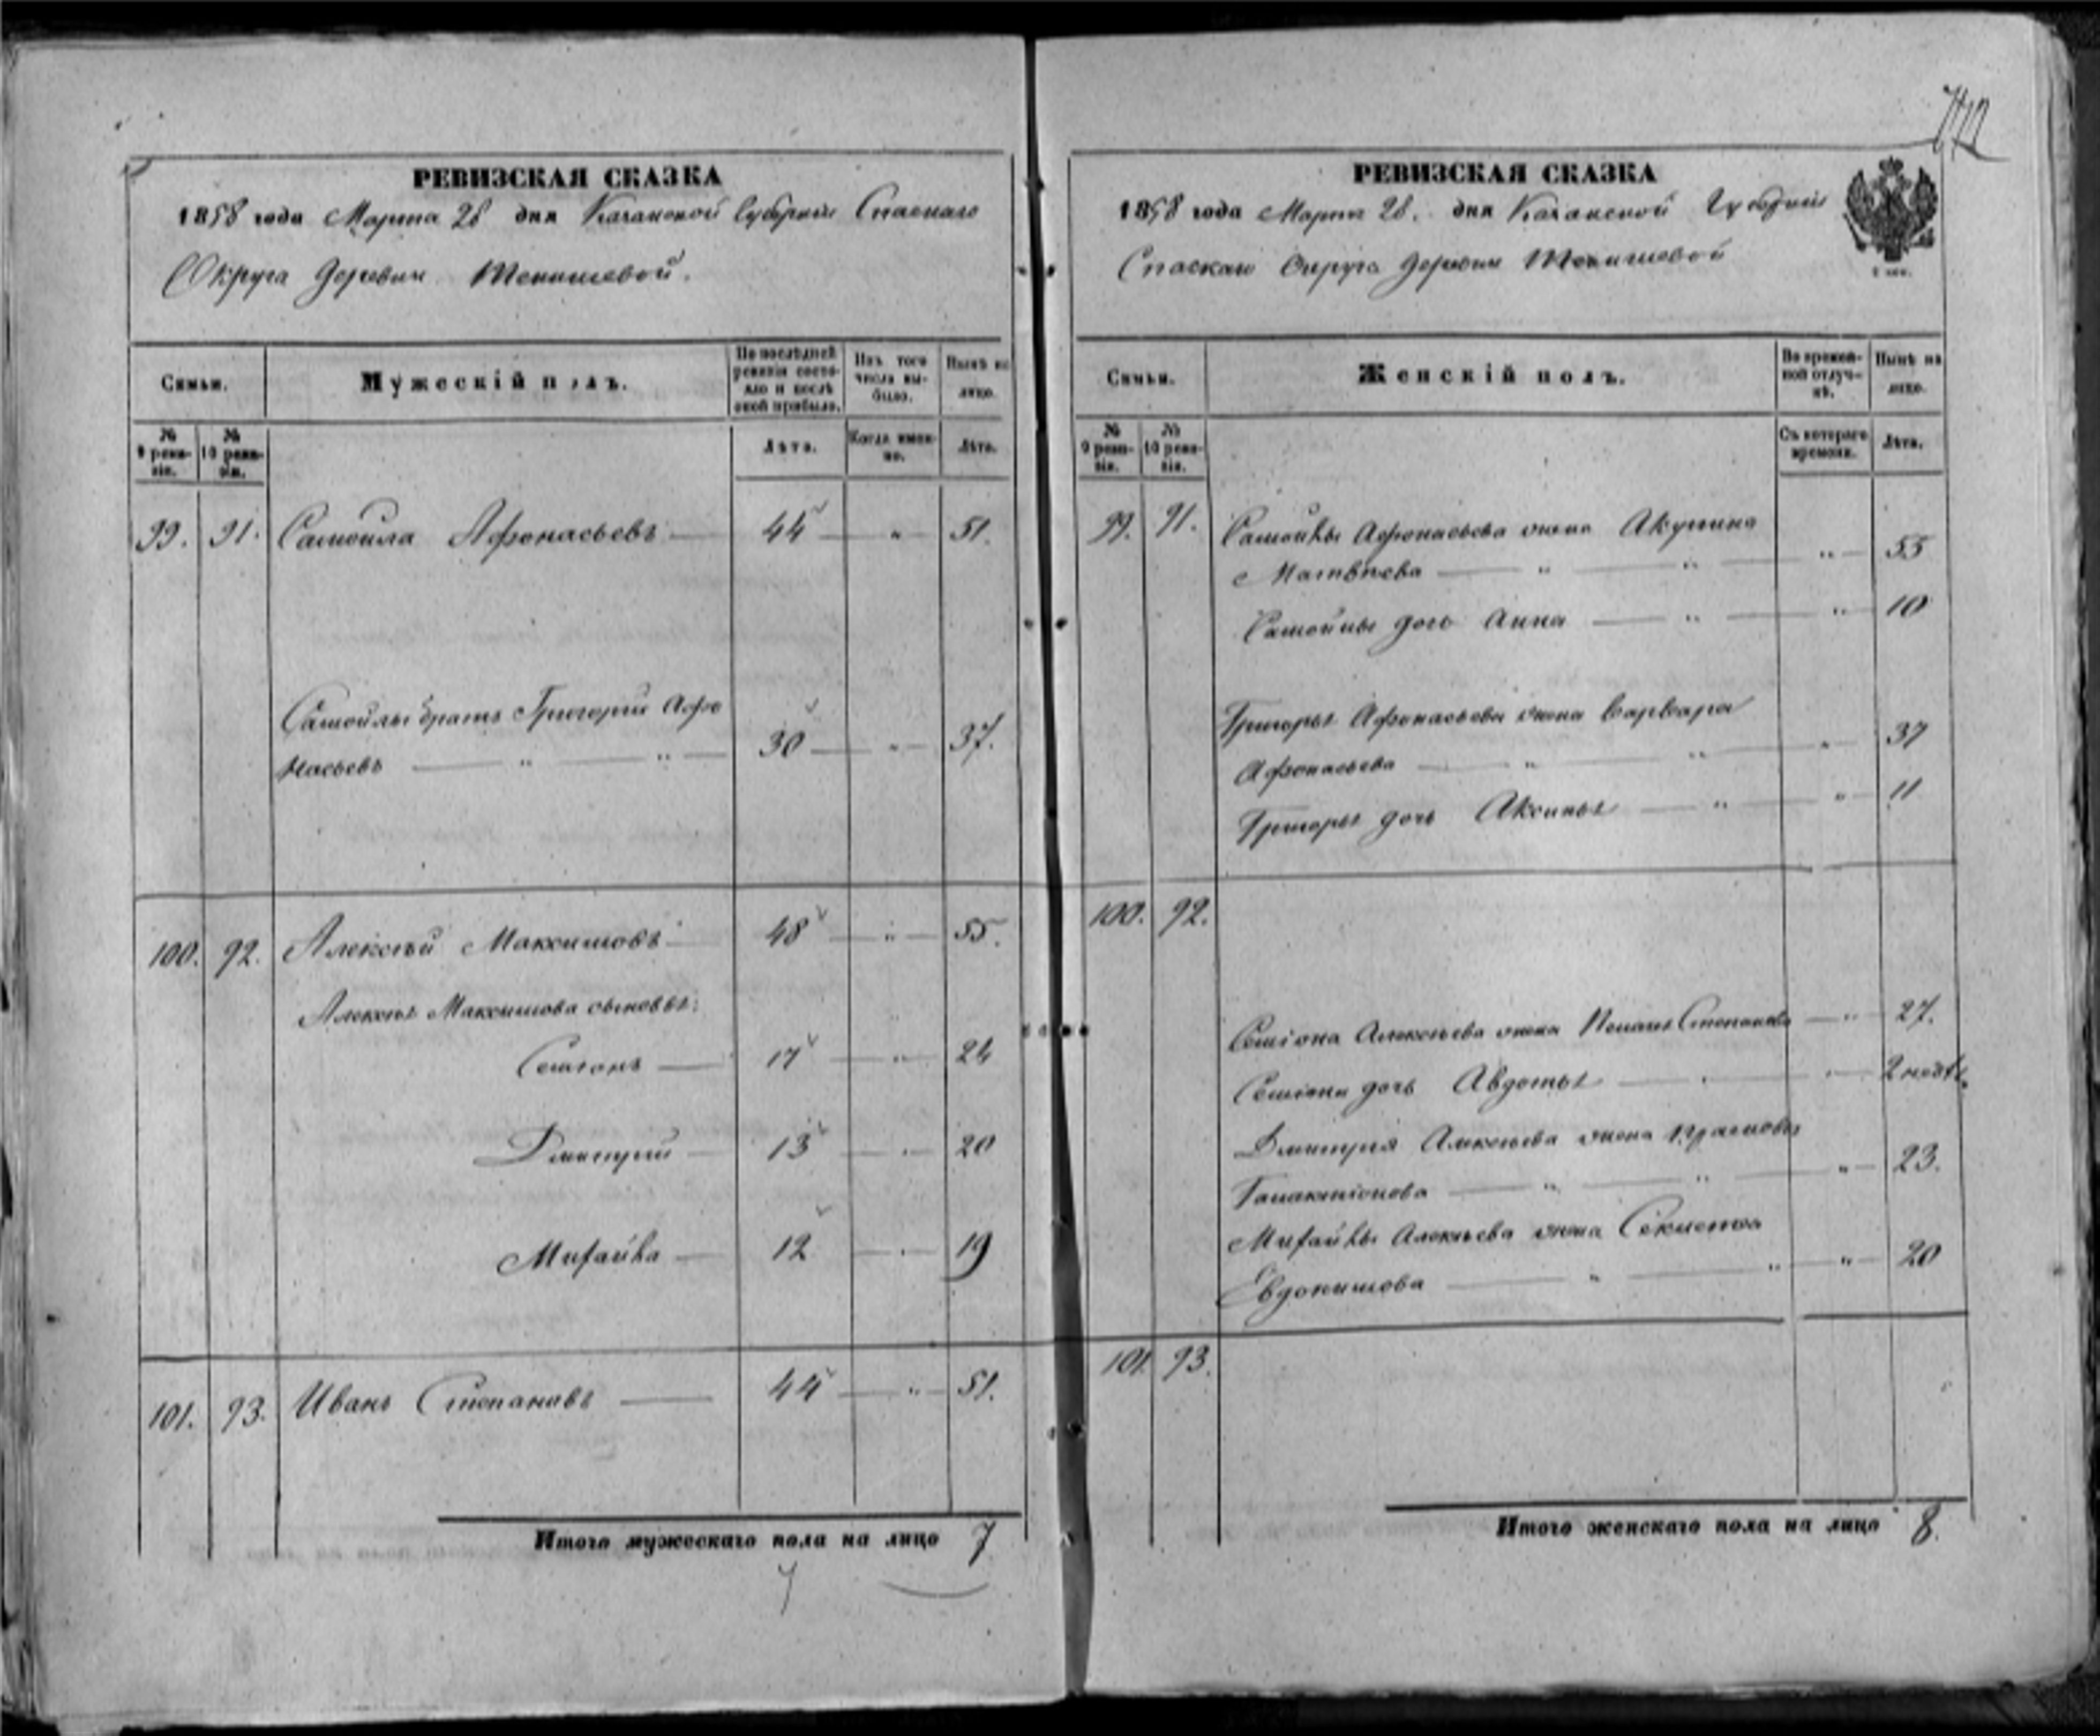 РЕВИЗСКАЯ СКАЗКА
1858 года Марта 28 дня Казанской Губернии Спаскаго
Округа деревни Тенишевой.
Семьи.
Мужескій полъ.
По последней ревизіи состояло и послѣ оной прибыло.
Изъ того числа выбыло.
Нынѣ на лицо.
№ 9 ревизіи.
№ 10 ревизіи.
Лѣта.
Когда именно.
Лѣта.
99. 91. Самойла Афонасьевъ — 44 — " — 51.
Самойлы братъ Григорій Афо
насьевъ — " — " — 30 — " — 37.
100. 92. Алексѣй Максимовъ — 48 — " — 55.
Алексѣя Максимова сыновья:
Семіонъ — 17 — " — 24
Дмитрий — 13 — " — 20
Михайла — 12 — " — 19
101. 93. Иванъ Степановъ — 44 — " — 51.
Итого мужескаго пола на лицо 7
7
РЕВИЗСКАЯ СКАЗКА
1858 года Марта 28. дня Казанской Губерніи
Спаскаго Округа деревни Тенишевой
Семьи.
Женскій полъ.
Во временной отлучкѣ.
Нынѣ на лицо.
№ 9 ревизіи.
№ 10 ревизіи.
Съ котораго времени.
Лѣта.
99. 91. Самойлы Афонасьева жена Акулина
Матвѣева — " — " — " — 55
Самойлы дочь Анна — " — " — 10
Григорья Афонасьева жена Варвара
Афонасьева — " — " — " — 37
Григорья дочь Аксинья — " — " — 11
100. 92.
Семіона Алексѣева жена Степанова — " — 27.
Семіона дочь Авдотья — " — " — 2 недѣл.
Дмитрия Алексѣева жена
Галактіонова — " — " — " — 23.
Михайлы Алексѣева жена
Евдокимова — " — " — " — 20
101. 93.
Итого женскаго пола на лицо 8.